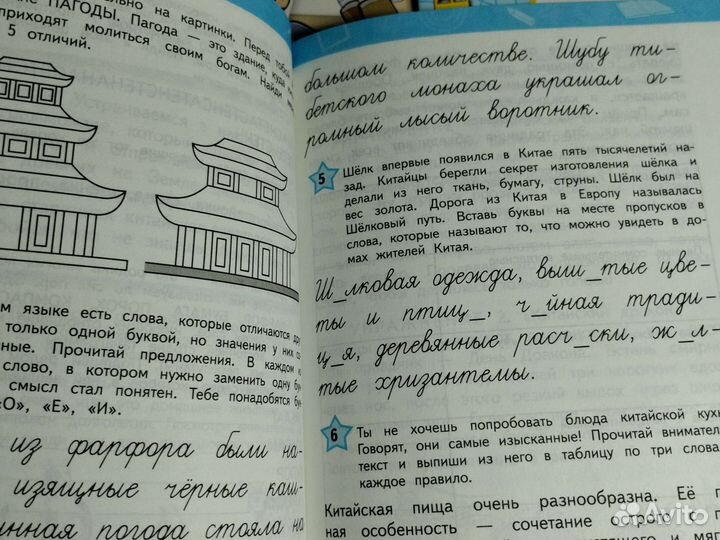 на картинки. Перед
ПАГОДЫ. Пагода — это здание, куда
приходят молиться своим богам. Найди
5 отличий.
языке есть слова, которые отличаются
только одной буквой, но значения у них
Прочитай предложения. В каждом
слово, в котором нужно заменить одну
смысл стал понятен. Тебе понадобятся
«О», «Е», «И».
из фарфора были на-
изящные чёрные каш-
погода стояла на
большом количестве. Шубу ти-
бетского монаха украшал ог-
ромный лысый воротник.
5
Шёлк впервые появился в Китае пять тысячелетий на-
зад. Китайцы берегли секрет изготовления шёлка и
делали из него ткань, бумагу, струны. Шёлк был на
вес золота. Дорога из Китая в Европу называлась
Шёлковый путь. Вставь буквы на месте пропусков в
слова, которые называют то, что можно увидеть в до-
мах жителей Китая.
Ш_лковая одежда, выши_тые цве-
ты и птиц_, ч_йная тради-
ц_я, деревянные расч_ски, ж_л-
тые хризантемы.
6
Ты не хочешь попробовать блюда китайской
Говорят, они самые изысканные! Прочитай
текст и выпиши из него в таблицу по три
каждое правило.
Китайская пища очень разнообразна. Её
ная особенность — сочетание острого с
Avito